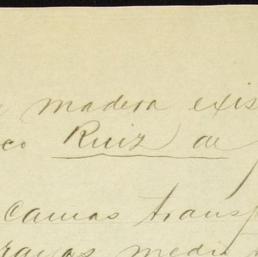 madera exis
co Ruiz de
camas transf
rayas medi